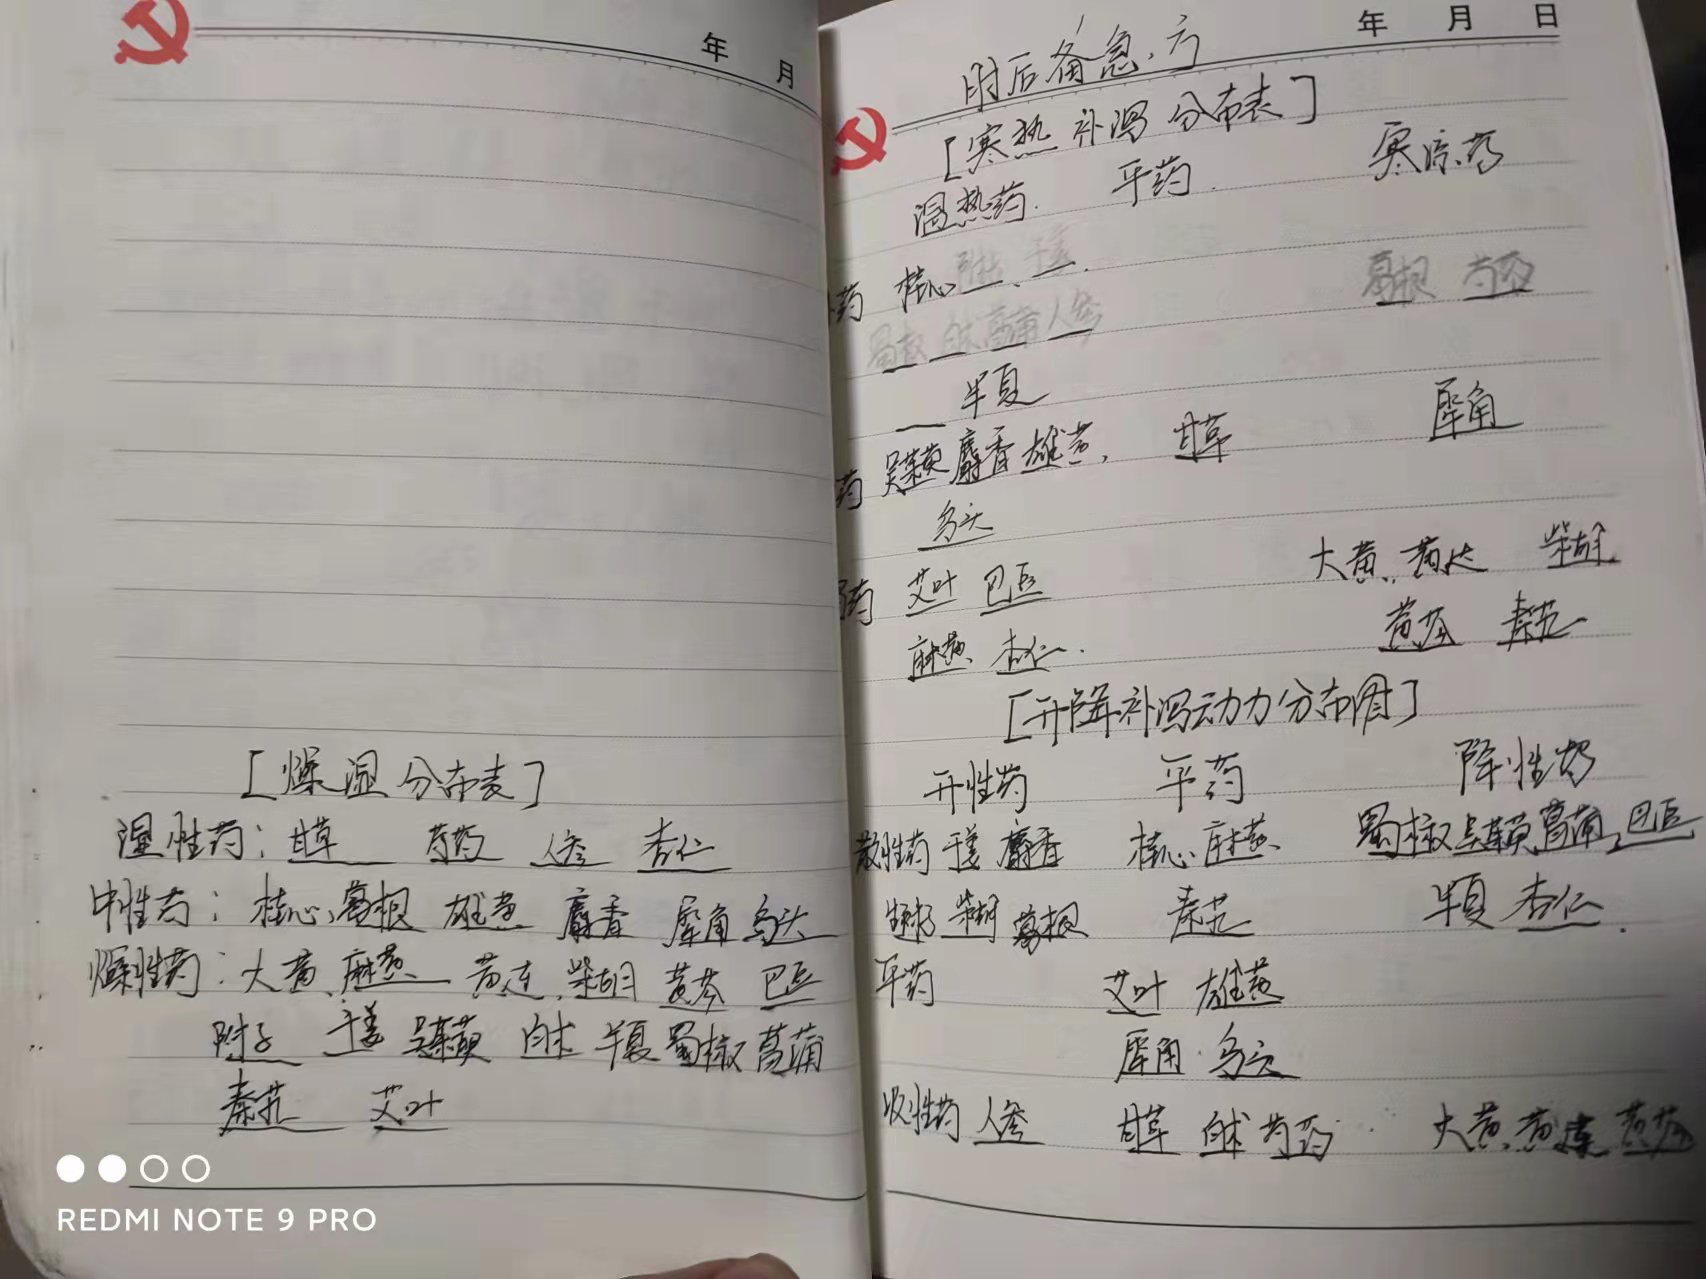 年 月
[燥湿分布表]
湿性药：甘草 芍药 人参 杏仁
中性药：桂心、葛根 雄黄 麝香 犀角 乌头
燥性药：大黄、麻黄 黄连、柴胡 黄芩 巴豆
附子 干姜 吴茱萸 白术 半夏 蜀椒 菖蒲
秦艽 艾叶
REDMI NOTE 9 PRO
年 月 日
肘后备急方
[寒热补泻分布表]
温热药. 平药. 寒凉药
药 桂心 附子 干姜. 葛根 芍药
蜀椒 白术 菖蒲 人参
半夏
药 吴茱萸 麝香 雄黄, 甘草 犀角
乌头
药 艾叶 巴豆 大黄, 黄连 柴胡
麻黄、杏仁. 黄芩 秦艽
[升降补泻动力分布图]
升性药 平药 降性药
散性药 干姜 麝香 桂心、麻黄 蜀椒 吴茱萸、菖蒲, 巴豆
柴胡 葛根 秦艽 半夏 杏仁.
平药 艾叶 雄黄
犀角 乌头
收性药 人参 甘草 白术 芍药 大黄、黄连 黄芩